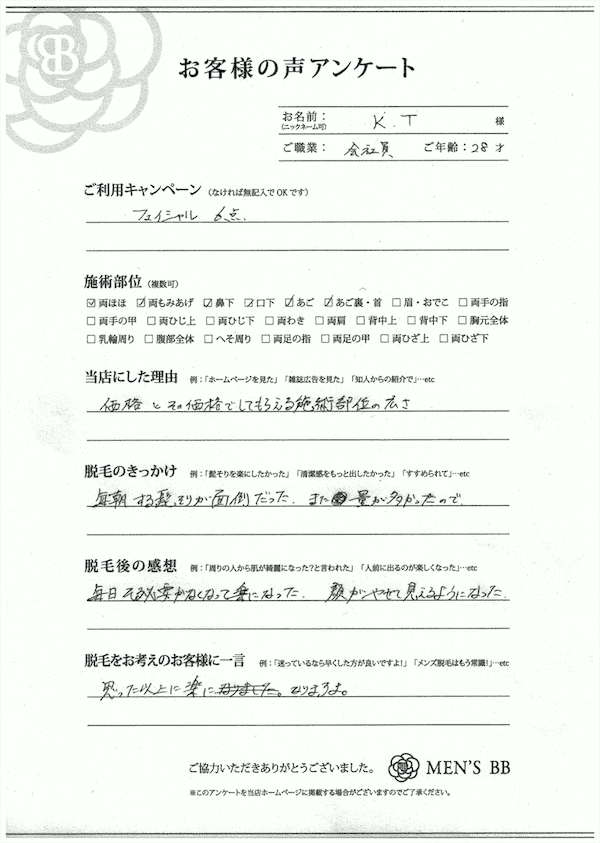 お客様の声アンケート
お名前：
（ニックネーム可）
K.T 様
ご職業： 会社員 ご年齢：28才
ご利用キャンペーン（なければ無記入でOKです）
フェイシャル 6点.
施術部位（複数可）
☑両ほほ ☑両もみあげ ☑鼻下 ☑口下 ☑あご ☑あご裏・首 □眉・おでこ □両手の指
□両手の甲 □両ひじ上 □両ひじ下 □両わき □両肩 □背中上 □背中下 □胸元全体
□乳輪周り □腹部全体 □へそ周り □両足の指 □両足の甲 □両ひざ上 □両ひざ下
当店にした理由 例：「ホームページを見た」「雑誌広告を見た」「知人からの紹介で」…etc
価格とその価格でしてもらえる施術部位の広さ
脱毛のきっかけ 例：「髭そりを楽にしたかった」「清潔感をもっと出したかった」「すすめられて」…etc
毎朝する髭そりが面倒だった. また量が多かったので.
脱毛後の感想 例：「周りの人から肌が綺麗になった？と言われた」「人前に出るのが楽しくなった」…etc
毎日そる必要がなくなって楽になった. 顔がやせて見えるようになった.
脱毛をお考えのお客様に一言 例：「迷っているなら早くした方が良いですよ！」「メンズ脱毛はもう常識！」…etc
思った以上に楽になりました。なりますよ。
ご協力いただきありがとうございました。 MEN'S BB
※このアンケートを当店ホームページに掲載する場合がございますのでご了承ください。